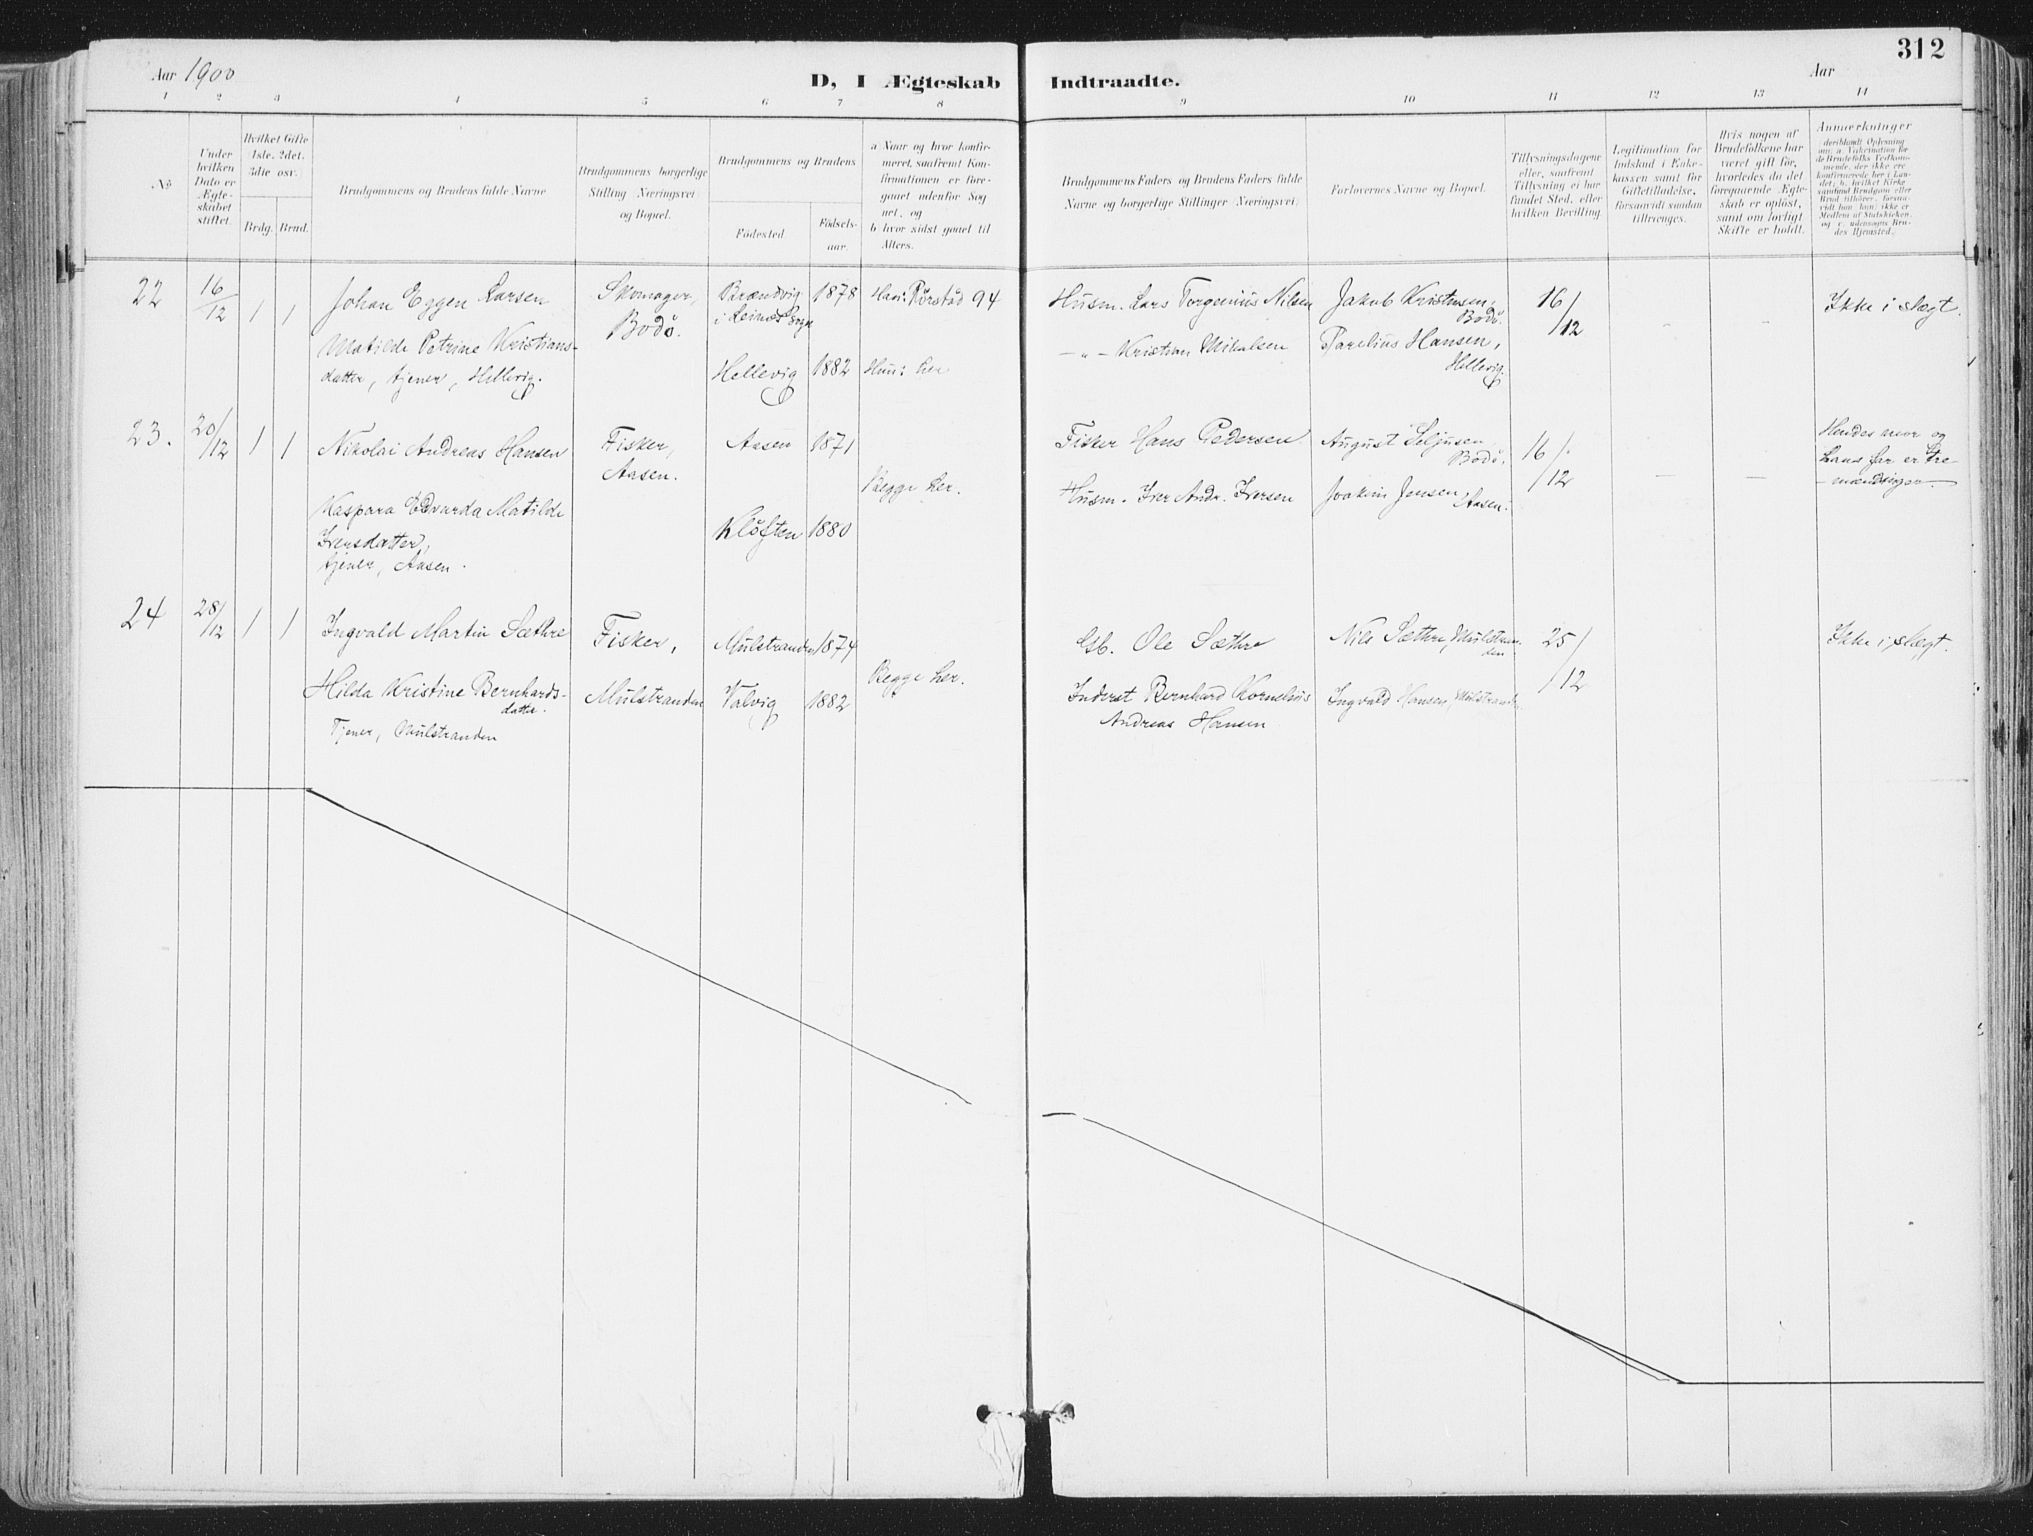 312
Aar 1900
D, I Ægteskab Indtraadte.
Aar
1 2 3 4 5 6 7 8 9 10 11 12 13 14
No
Under
hvilken
Dato er
Ægte-
skabet
stiftet.
Hvilket Gifte
1ste. 2det.
3die osv.
Brdg. Brud.
Brudgommens og Brudens fulde Navne
Brudgommens borgerlige
Stilling Næringsvei
og Bopæl.
Brudgommens og Brudens
Fødested.
Fødsels-
aar.
a Naar og hvor konfir-
meret, saafremt Kon-
firmationen er fore-
gaaet udenfor Sog
net, og
b hvor sidst gaaet til
Alters.
Brudgommens Faders og Brudens Faders fulde
Navne og borgerlige Stillinger Næringsvei.
Forlovernes Navne og Bopæl.
Tillysningsdagene
eller, saafremt
Tillysning ei har
fundet Sted, efter
hvilken Bevilling.
Legitimation for
Indskud i Enke-
kassen samt for
Giftetilladelse,
forsaavidt saadan
tiltrænges.
Hvis nogen af
Brudefolkene har
været gift før,
hvorledes da det
foregaaende Ægte-
skab er opløst,
samt om lovligt
Skifte er holdt.
Anmærkninger
22 16/12 1 1 Johan Eggen Larsen Skomager, Brændvig 1878 Han: Rørstad 94 Husm. Lars Torgenius Nilsen Jakob Kristensen, 16/12 - - Ikke i slægt.
Bodø. i Leines Sogn Bodø.
Matilde Petrine Kristians-
datter, tjener, Hellevig. Hellevig 1882 Hun: her - " - Kristian Mikalsen Parelius Hansen,
Hellevig.
23. 20/12 1 1 Nikolai Andreas Hansen Fisker, Aasen 1871 Fisker Hans Pedersen August Seljusen, 16/12 - - Hendes mor og
Aasen. Begge her. Bodø. hans far er tre-
mændinger
Kaspara Edvarda Matilde Kløften 1880 Husm. Iver Andr. Iversen Joakim Jensen, Aasen.
Iversdatter,
tjener, Aasen.
24 28/12 1 1 Ingvald Martin Sæthre Fisker, Mulstranden 1874 Gb. Ole Sæthre Nils Sæthre, Mulstran- 25/12 Ikke i slægt.
den
Begge her.
Hilda Kristine Bernhards- Mulstranden Valvig 1882 Inderst Bernhard Kornelius Ingvald Hansen, Mulstranden
datter. Andreas Hansen
Tjener, Mulstranden